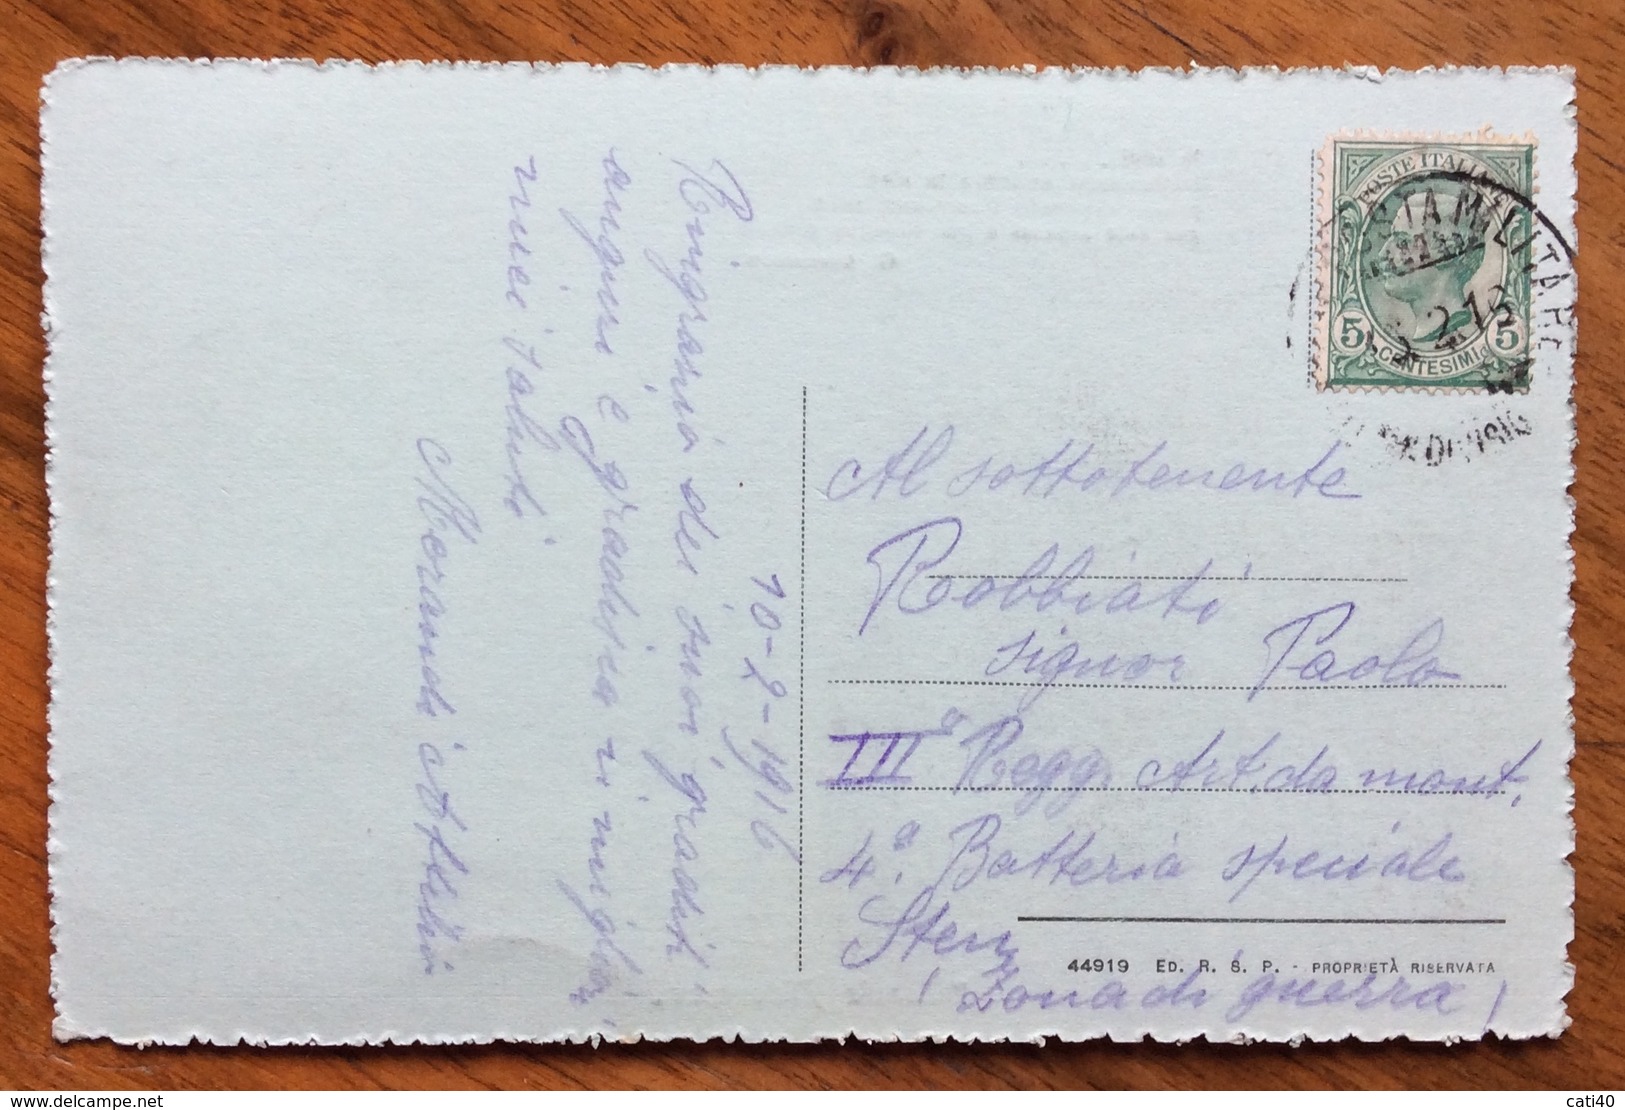 10-2-1916
Ringrazio dei suoi graditi
auguri e gradisca i miglior
miei saluti
Morandi Attilio
POSTE ITALIANE
5 CENTESIMI 5
POSTA MILITARE
2.16
DIVISIO
Al sottotenente
Robbiati
signor Paolo
IIIº Regg. Art. da mont.
4ª. Batteria speciale
(Zona di guerra)
44919 ED. R. S. P. - PROPRIETÀ RISERVATA
delcampe.net
cati40